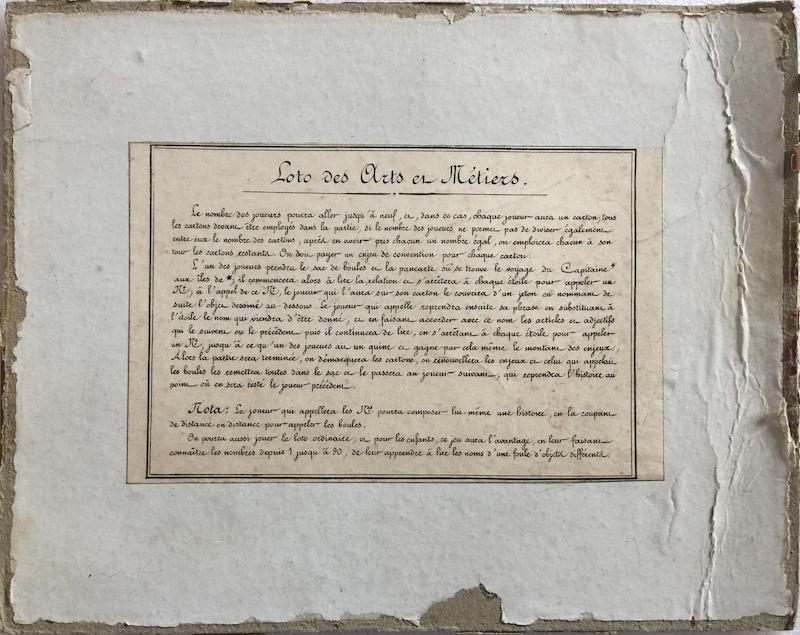 Loto des Arts et Métiers.
Le nombre des joueurs pourra aller jusqu'à neuf, et, dans ce cas, chaque joueur aura un carton; tous
les cartons devant être employés dans la partie, si le nombre des joueurs ne permet pas de diviser également
entre eux le nombre des cartons, après en avoir pris chacun un nombre égal, on emploiera chacun à son
tour les cartons restants. On doit payer un enjeu de convention pour chaque carton.
L'un des joueurs prendra le sac de boules et la pancarte où se trouve le voyage du Capitaine *
aux îles de *; il commencera alors à lire la relation et s'arrêtera à chaque étoile pour appeler un
N°; à l'appel de ce N°, le joueur qui l'aura sur son carton le couvrira d'un jeton en nommant de
suite l'objet dessiné au-dessous. Le joueur qui appelle reprendra ensuite sa phrase en substituant à
l'étoile le nom qui viendra d'être donné, et en faisant accorder avec ce nom les articles et adjectifs
qui le suivent ou le précèdent puis il continuera de lire, en s'arrêtant à chaque étoile pour appeler
un N°, jusqu'à ce qu'un des joueurs ait un quine et gagne par cela même le montant des enjeux;
Alors la partie sera terminée, on démarquera les cartons, on renouvellera les enjeux et celui qui appelait
les boules les remettra toutes dans le sac et le passera au joueur suivant, qui reprendra l'histoire au
point où en sera resté le joueur précédent.
Nota: Le joueur qui appellera les N°s pourra composer lui-même une histoire, en la coupant
de distance en distance pour appeler les boules.
On pourra aussi jouer le loto ordinaire, et pour les enfants, ce jeu aura l'avantage, en leur faisant
connaître les nombres depuis 1 jusqu'à 90, de leur apprendre à lire les noms d'une foule d'objets différents.